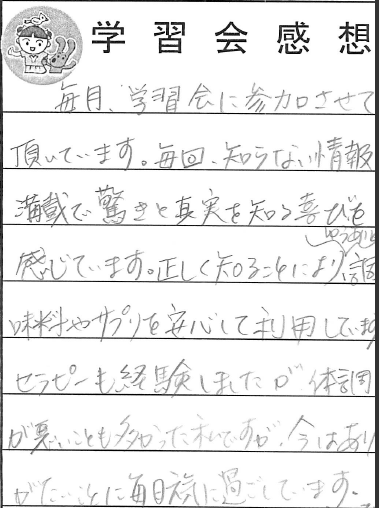 学習会感想
毎月、学習会に参加させて
頂いています。毎回、知らない情報
満載で驚きと真実を知る喜びを
感じています。正しく知ることにより、調
味料やサプリを安心して利用しています
セラピーも経験しましたが、体調
が悪いことも多かった私ですが、今はあり
がたいことに毎日元気に過ごしています。